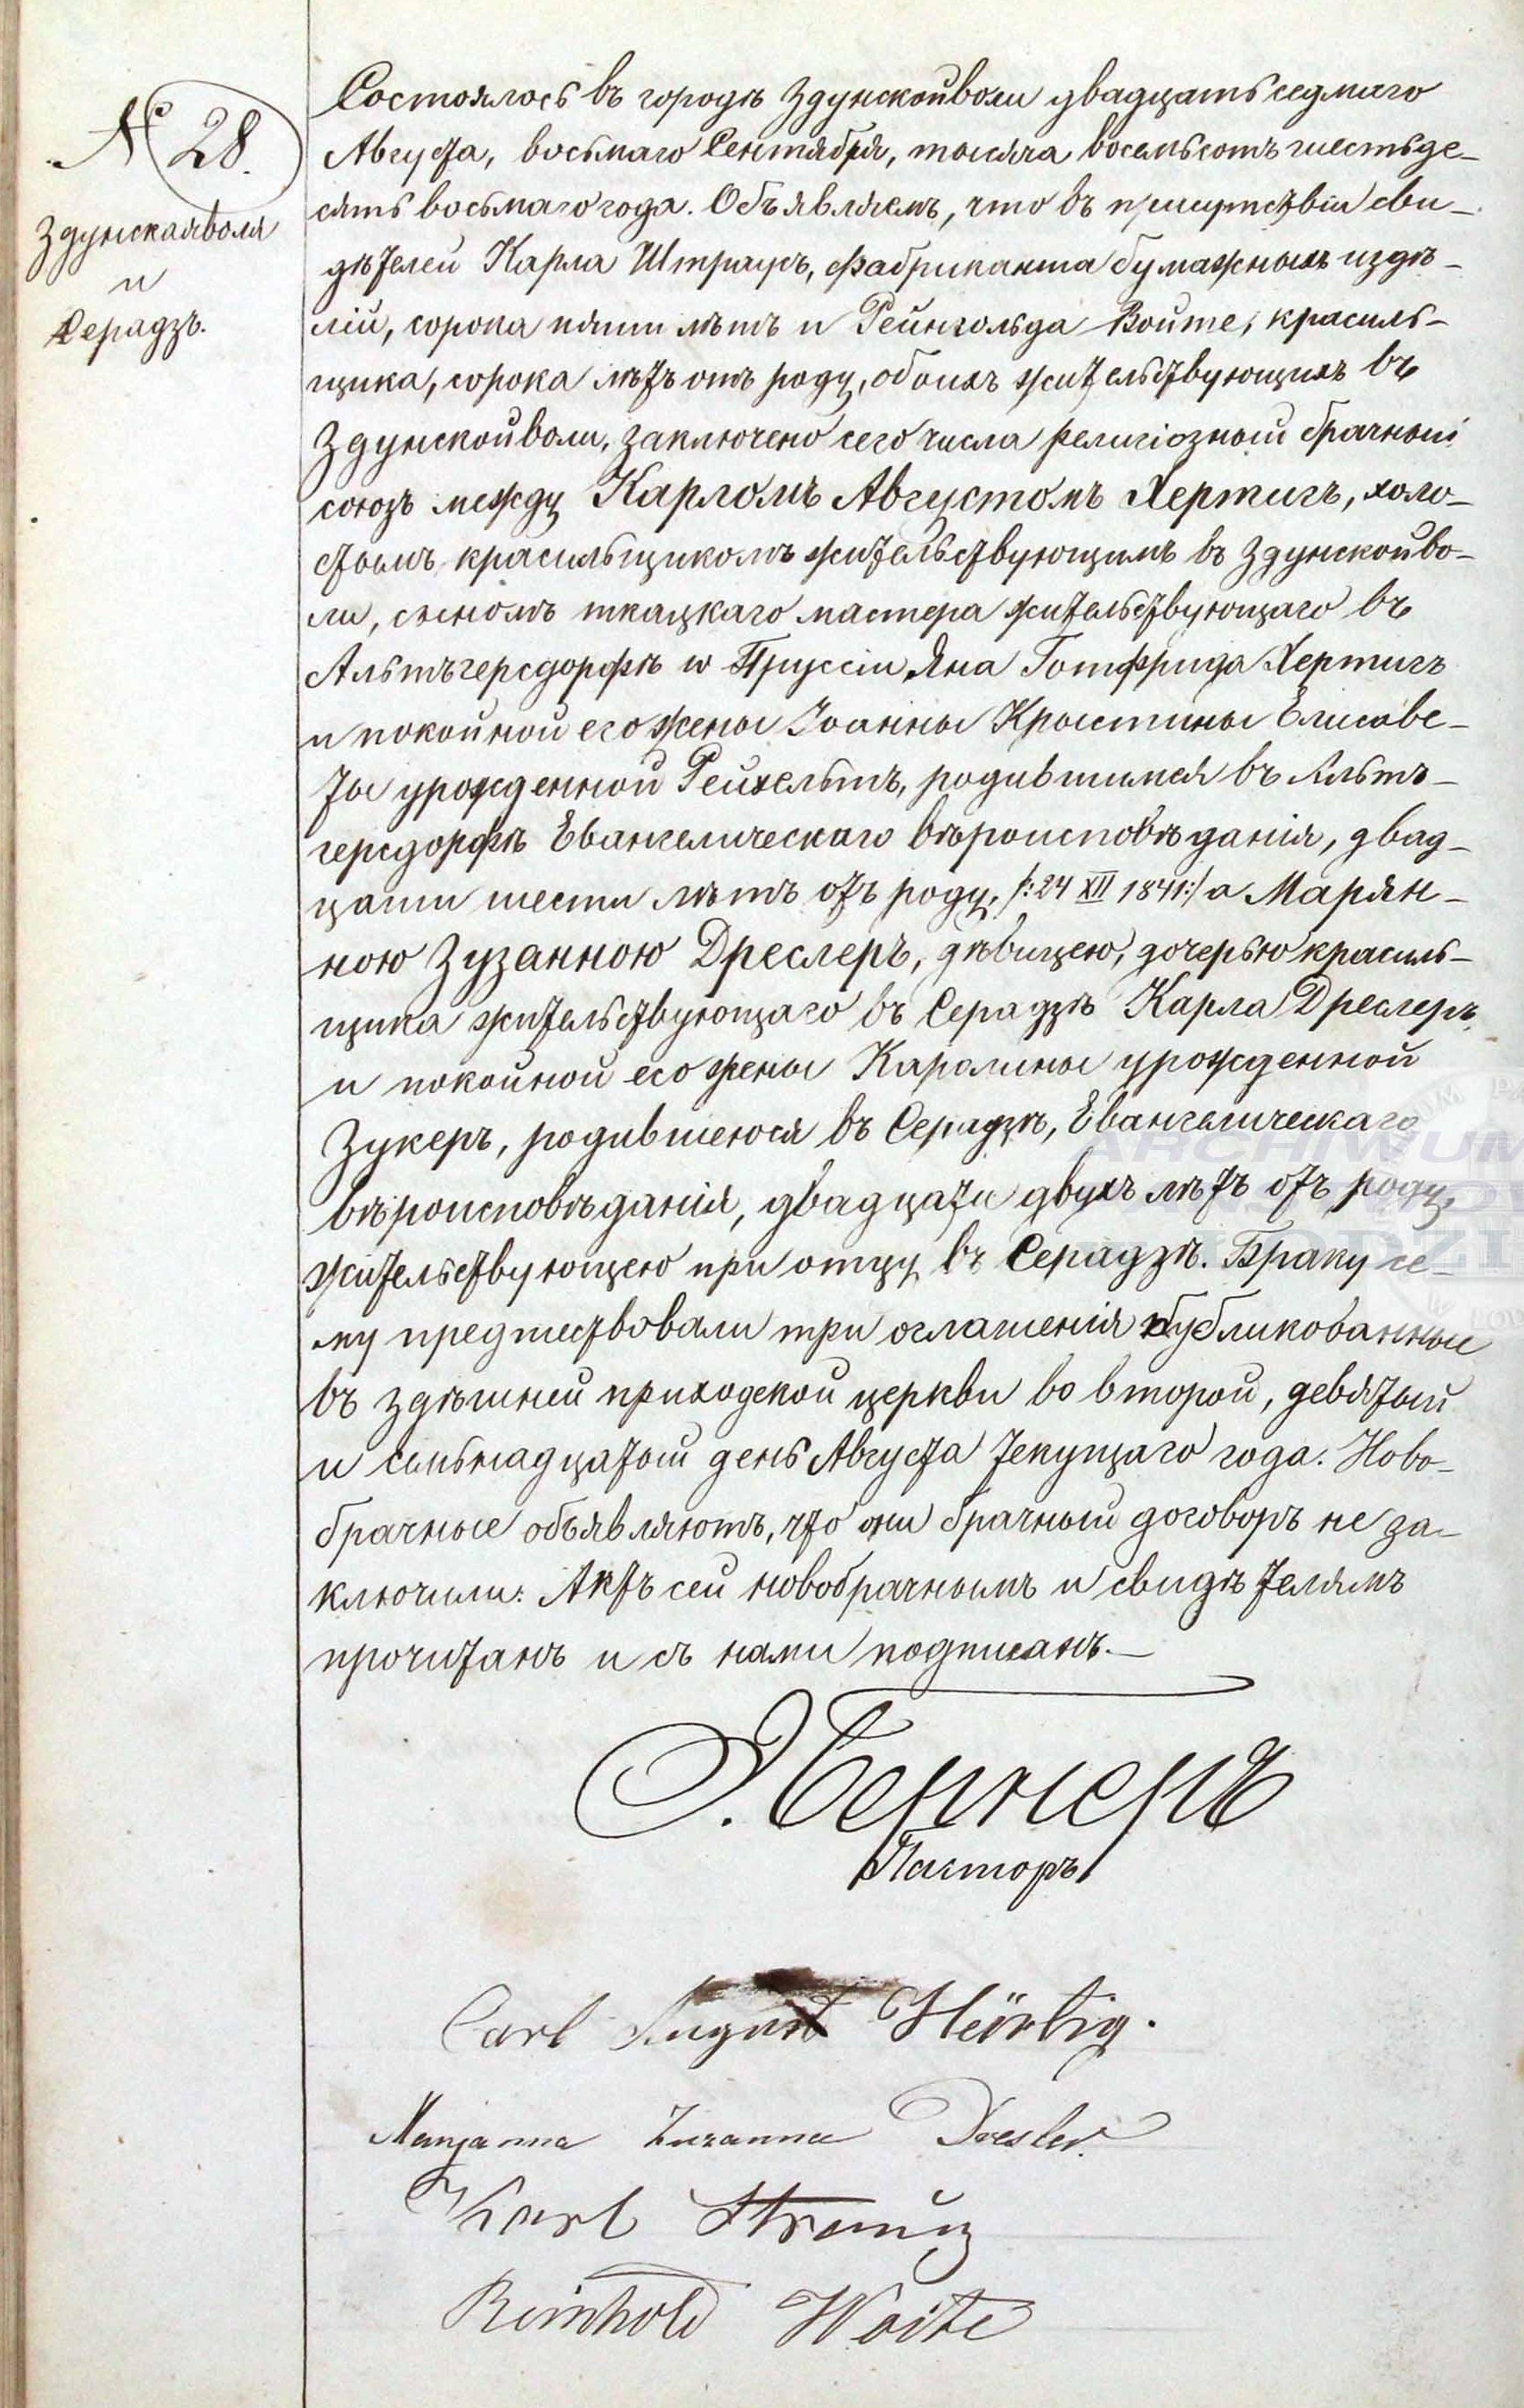 № 28.
Здунскаяволя
и
Серадзъ.
Состоялось въ городѣ Здунскойволи двадцать седмаго
Августа, восьмаго Сентября, тысяча восемьсотъ шестьде-
сятъ восьмаго года. Объявляемъ, что въ присутствіи сви-
дѣтелей Карла Штраусъ, фабриканта бумажныхъ издѣ-
лій, сорока пяти лѣтъ и Рейнгольда Войте, красиль-
щика, сорока лѣтъ отъ роду, обоихъ жительствующихъ въ
Здунскойволи, заключено сего числа религіозный брачный
союзъ между Карломъ Августомъ Хертигъ, холо-
стымъ красильщикомъ жительствующимъ въ Здунскойво-
ли, сыномъ ткацкаго мастера жительствующаго въ
Альтъгерсдорфѣ w Пруссіи Яна Готфрида Хертигъ
и покойной его жены Іоанны Крыстины Елисаве-
ты урожденной Рейхельтъ, родившимся въ Альтъ-
герсдорфѣ Евангелическаго вѣроисповѣданія, двад-
цати шести лѣтъ отъ роду, /:24 XII 1841:/ а Марян-
ною Зузанною Дреслеръ, дѣвицею, дочерью красиль-
щика жительствующаго въ Серадзѣ Карла Дреслеръ
и покойной его жены Каролины урожденной
Зукеръ, родившеюся въ Серадзѣ, Евангелическаго
вѣроисповѣданія, двадцати двухъ лѣтъ отъ роду,
жительствующею при отцу въ Серадзѣ. Браку се-
му предшествовали три оглашенія публикованные
въ здѣшней приходской церкви во второй, девятый
и семьнадцатый день Августа текущаго года. Ново-
брачные объявляютъ, что они брачный договоръ не за-
ключили. Актъ сей новобрачнымъ и свидѣтелямъ
прочитанъ и съ нами подписанъ.—
Э. Бернеръ
Пасторъ
Carl August Härtig.
Marjanna Zuzanna Dresler.
Karl Strauß
Reinhold Woite
ARCHIWUM